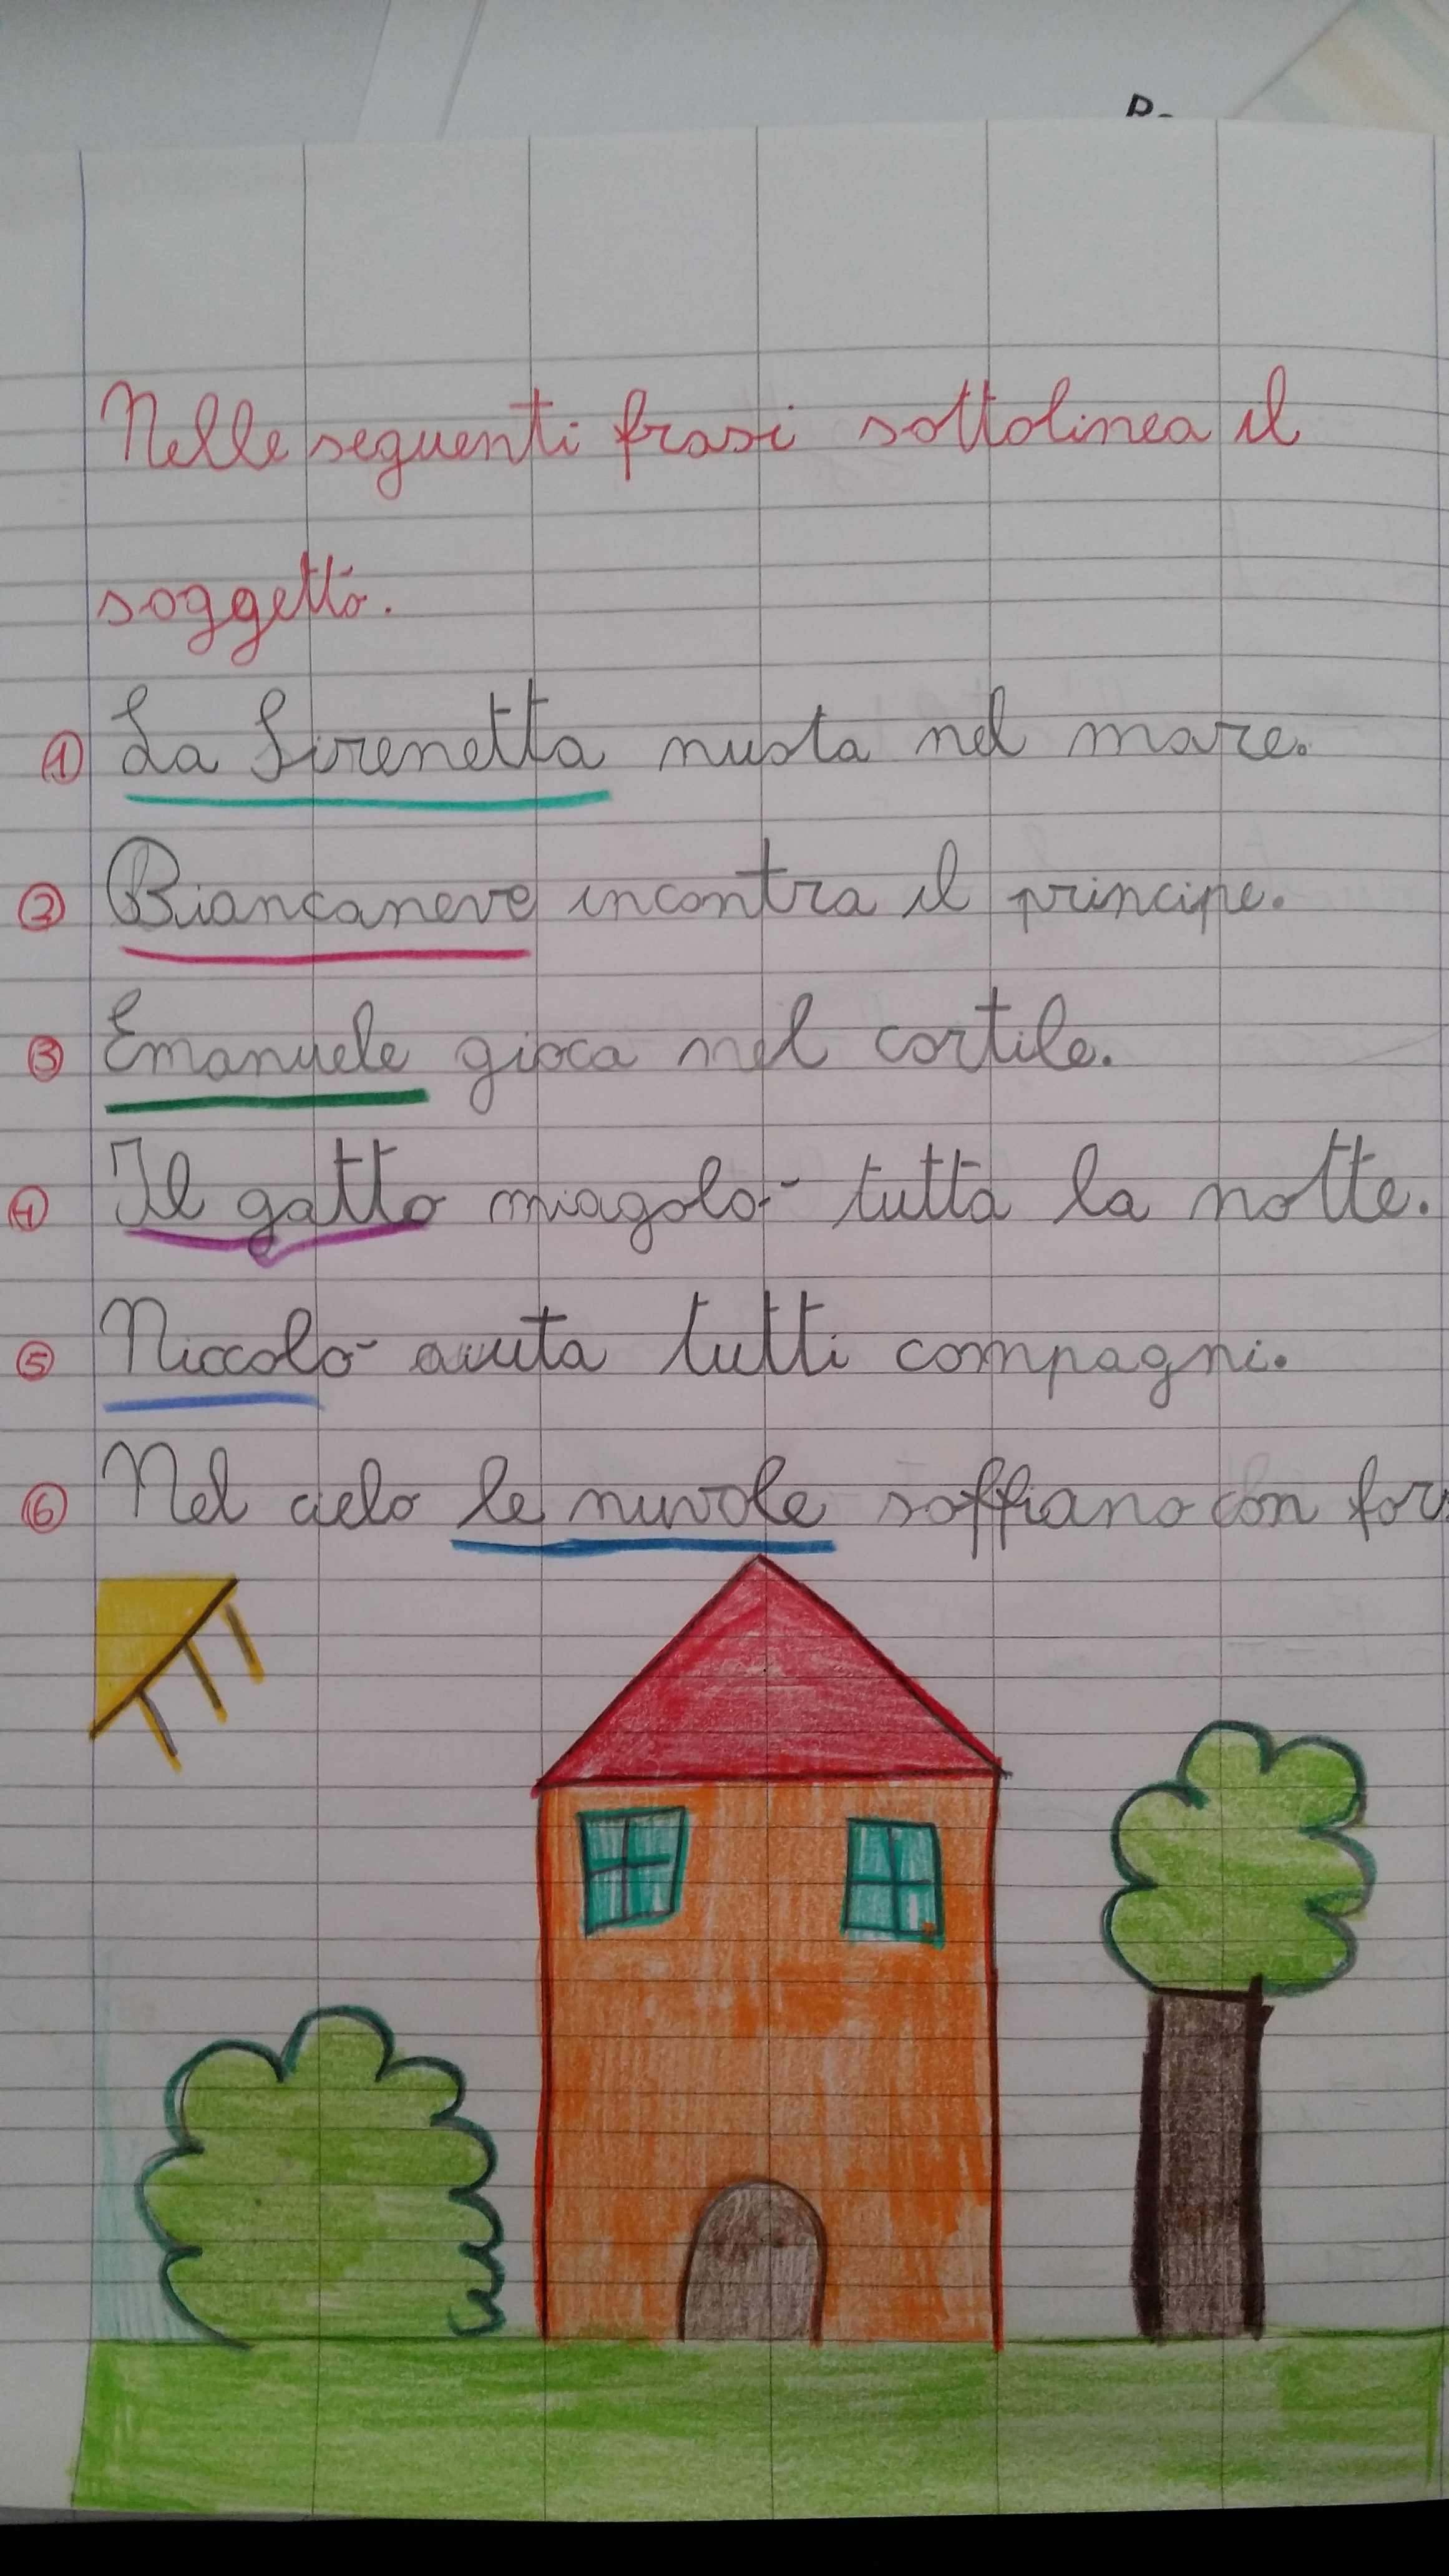 Nelle seguenti frasi sottolinea il
soggetto.
1 La Sirenetta nuota nel mare.
2 Biancaneve incontra il principe.
3 Emanuele gioca nel cortile.
4 Il gatto miagolò tutta la notte.
5 Niccolò aiuta tutti compagni.
6 Nel cielo le nuvole soffiano con for